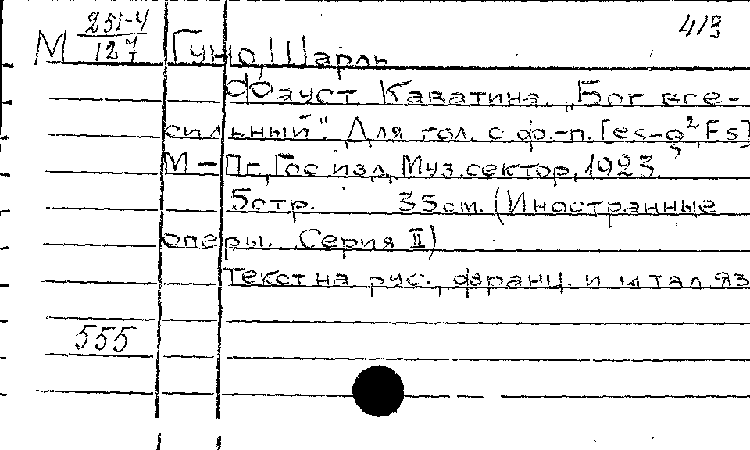 413
М 251-4/127 Гуно, Шарль
Фауст. Каватина. „Бог все-
сильный". Для гол. с ф.-п. [es-g², Fs]
М – Пг, Гос. изд, Муз. сектор, 1923.
5стр. 35см. (Иностранные
оперы. Серия II)
Текст на рус., франц. и итал. яз
555